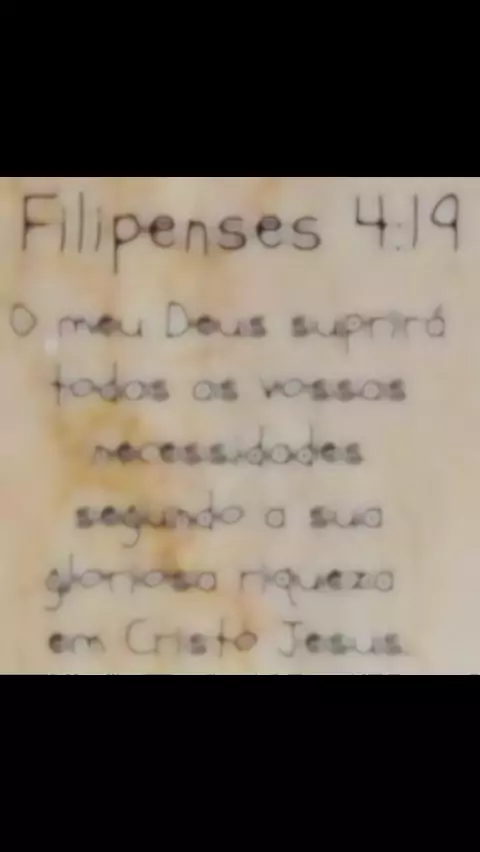 Filipenses 4:19
O meu Deus suprirá
todas as vossas
necessidades
segundo a sua
gloriosa riqueza
em Cristo Jesus.